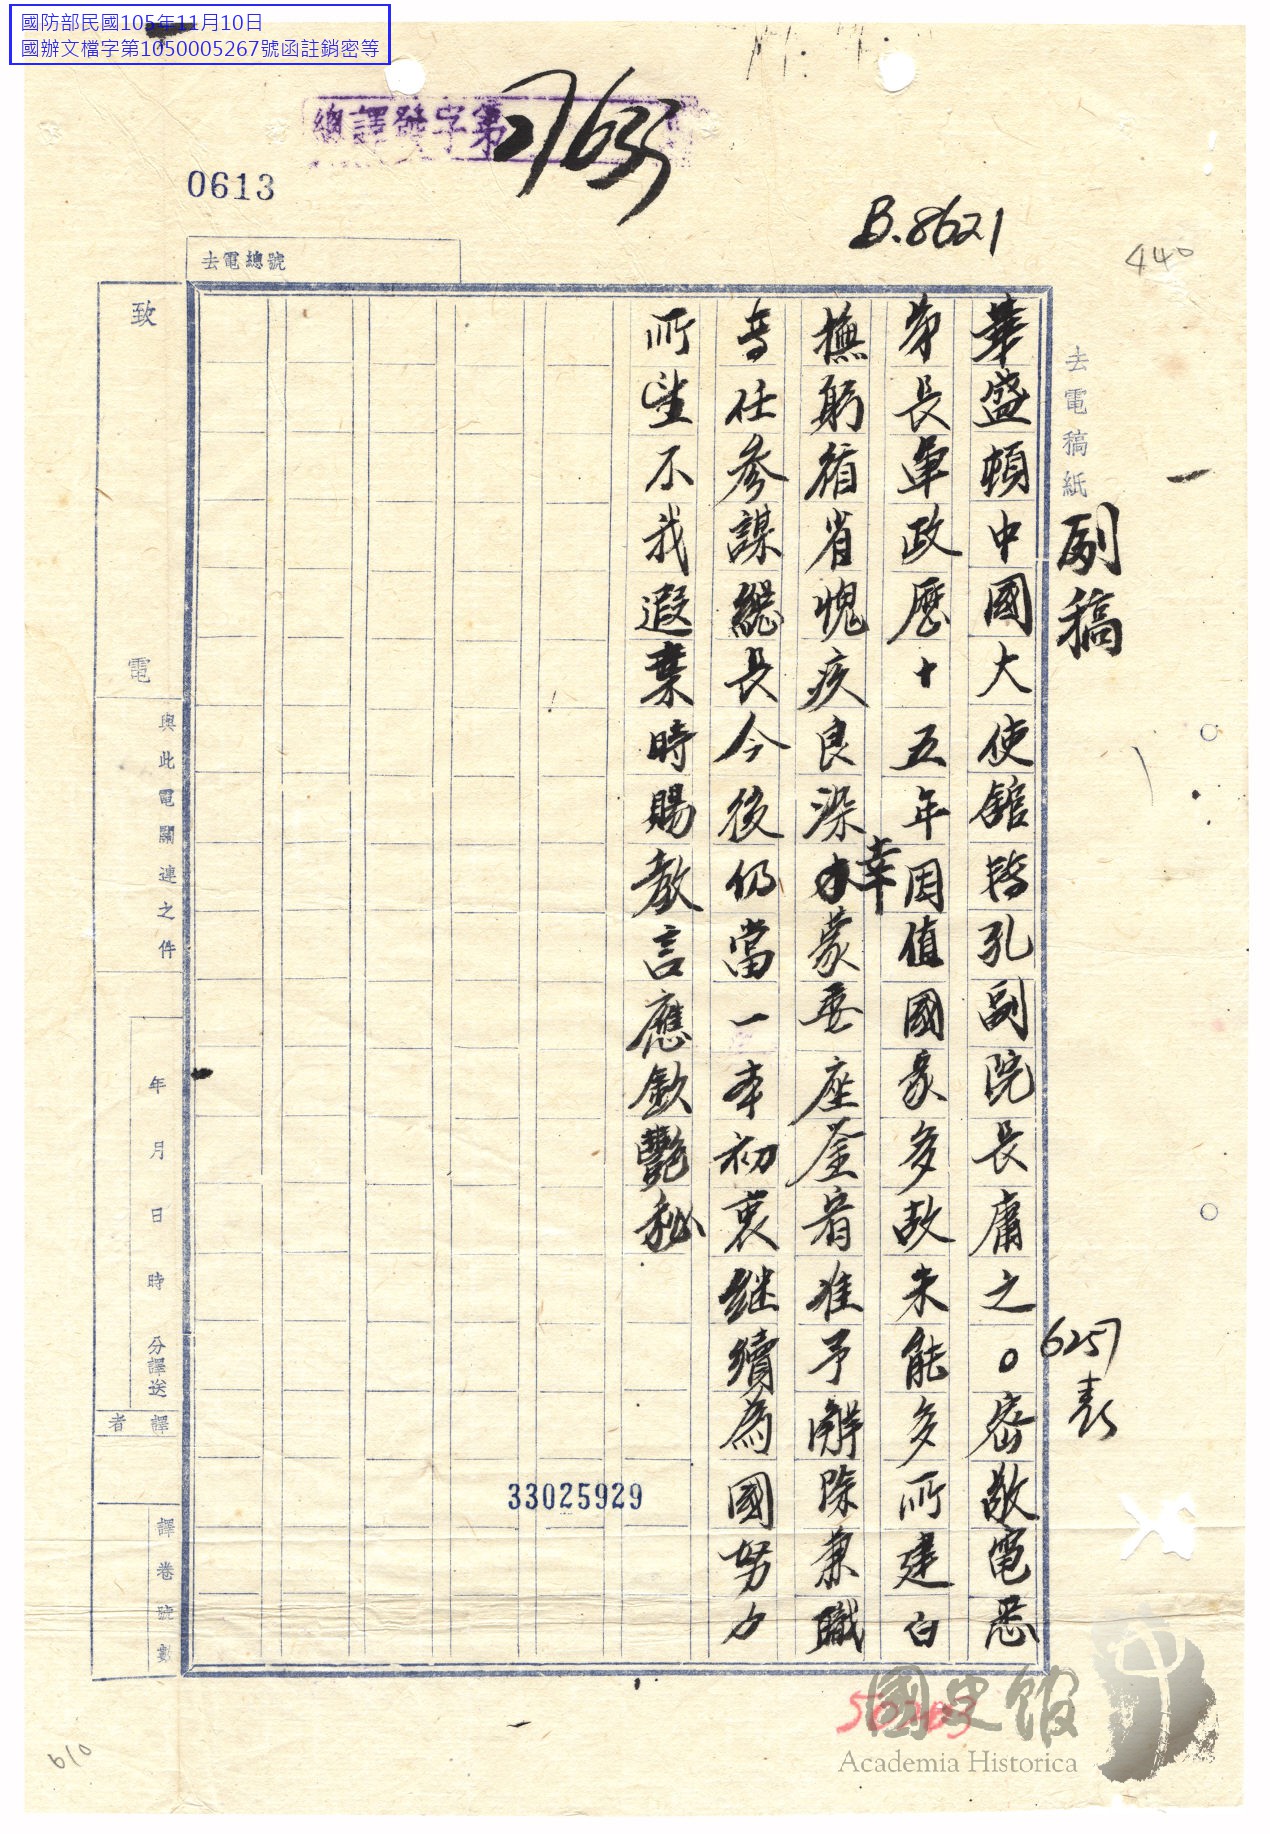 國防部民國105年11月10日
國辦文檔字第1050005267號函註銷密等
總譯發字第
0613
B.8621
440
去電總號
去電稿紙
副稿
6257
表
華盛頓中國大使館轉孔副院長庸之。密敬電悉
弟長軍政歷十五年因值國家多故未能多所建白
撫躬循省愧疚良深幸蒙委座荃眷准予解除兼職
專任參謀總長今後仍當一本初衷继續為國努力
所望不我遐棄時賜教言應欽艷秘
33025929
致
電
與此電關連之件
年月日時分譯送
譯者
譯卷號數
國史館
Academia Historica
610